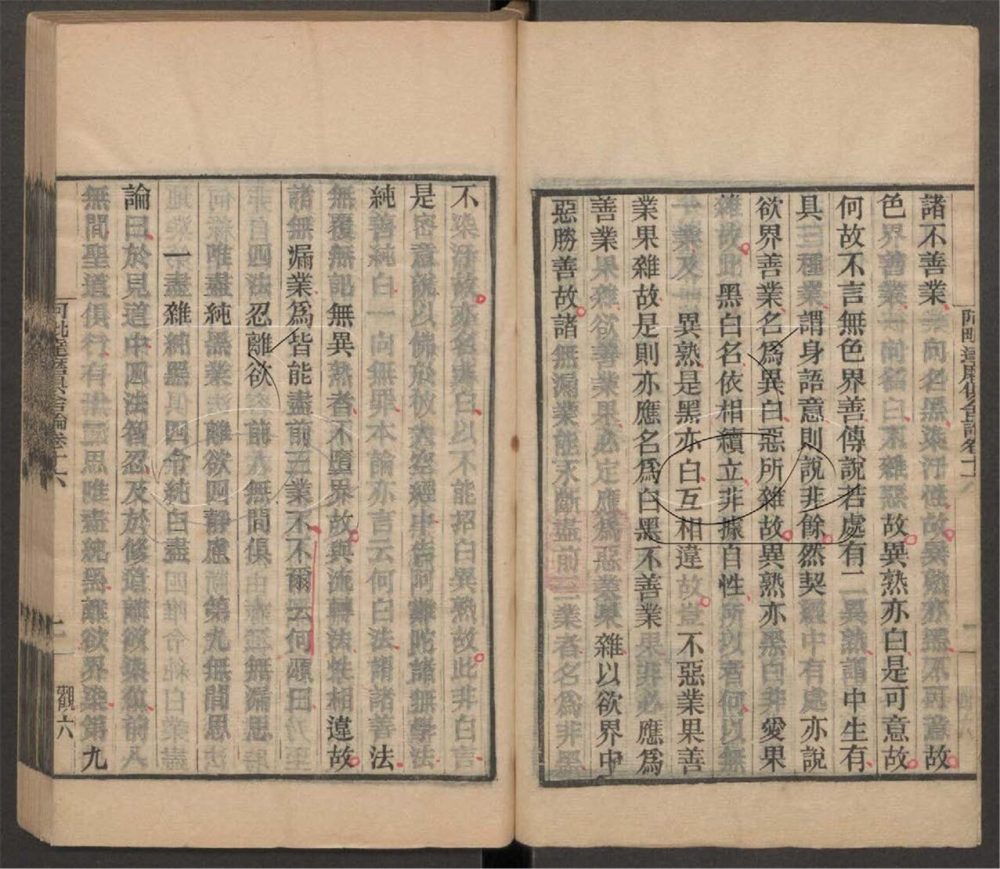 諸不善業一向名黑染汙性故異熟亦黑不可意故
色界善業一向名白不雜惡故異熟亦白是可意故
何故不言無色界善傳說若處有二異熟謂中生有
具三種業謂身語意則說非餘然契經中有處亦說
欲界善業名爲黑白惡所雜故異熟亦黑白非愛果
雜故此黑白名依相續立非據自性所以者何以無
一業及一異熟是黑亦白互相違故豈不惡業果善
業果雜故是則亦應名爲白黑不善業果非必應爲
善業果雜欲善業果必定應爲惡業果雜以欲界中
惡勝善故諸無漏業能永斷盡前三業者名爲非黑
不染汙故亦名非白以不能招白異熟故此非白言
是密意說以佛於彼大空經中告阿難陀諸無學法
純善純白一向無罪本論亦言云何白法謂諸善法
無覆無記無異熟者不墮界故與流轉法性相違故
諸無漏業爲皆能盡前三業不不爾云何頌曰
四法忍離欲 前八無間俱 十二無漏思
唯盡純黑業 離欲四靜慮 第九無間思
一盡雜純黑 四令純白盡
論曰於見道中四法智忍及於修道離欲染位前八
無間聖道俱行有十二思唯盡純黑離欲界染第九
阿毗達磨俱舍論卷十六
二
觀六